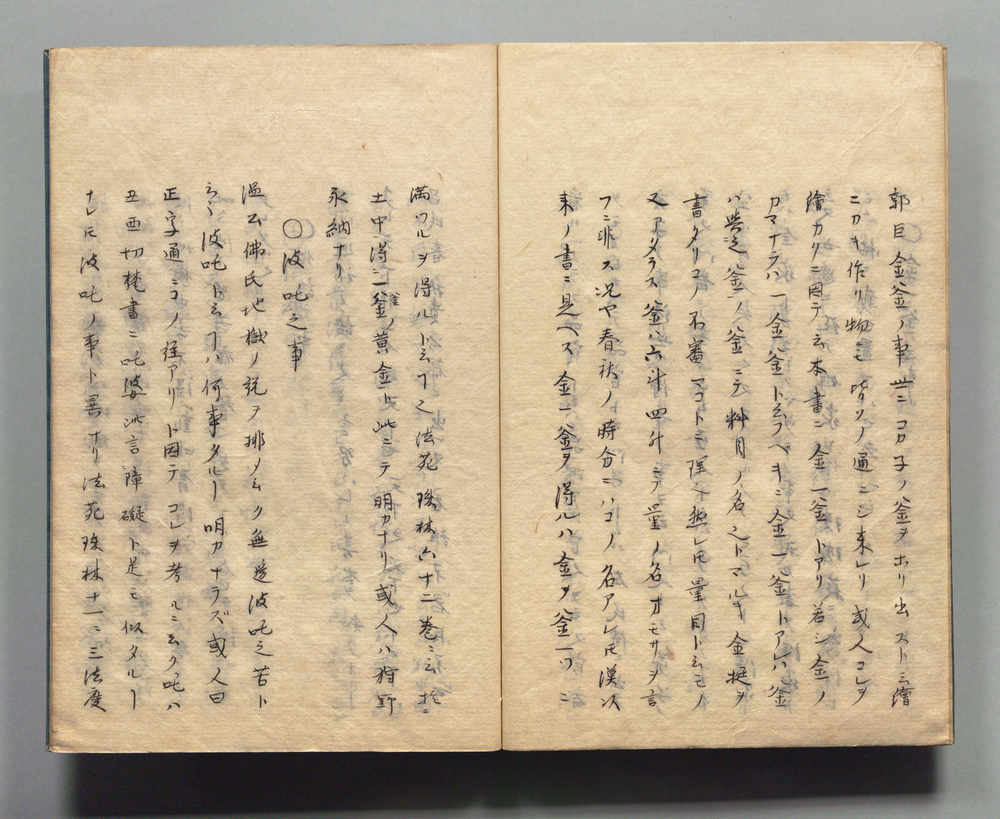 郭巨金釜ノ事世ニコガ子ノ釜ヲホリ出スト云繪
ニカキ作リ物ニモ皆ソノ通ニシ来レリ或人コレヲ
繪カクニ因テ云本書ニ金一釜トアリ若シ金ノ
カマナラハ一金釜ト云フヘキニ金一釜トアハ釜
ハ器之釜ノ釜ニテ料目ノ名之トマルキ金挺ヲ
書タリコノ不審マコトニ理之然レ𪜈量目ト云モノ
又アタラス釜ハ六斗四升ニテ量ノ名オモサヲ言
フニ非ス況ヤ春秋ノ時分ニハコノ名アレ𪜈漢以
来ノ書ニ見ヘス金一釜ヲ得ルハ金ヲ釜一ツニ
満ツルヲ得ルト云フ之法苑珠林六十二巻ニ云
土中得一釜ノ黄金ト此ニテ明カナリ或人ハ狩野
永納ナリ
波吒之事
温公佛氏地獄ノ説ヲ排メ云ク無邊波吒之苦ト
云々波吒ト云フハ何事タルー明カナラズ或人曰
正字通ニコノ〓アリト因テコレヲ考ルニ云ク吒ハ
丑亜切梵書ニ吒婆此言障礙ト足ニモ似タルー
ナレ𪜈波吒ノ事ト異ナリ法苑珠林十一ニ三法度